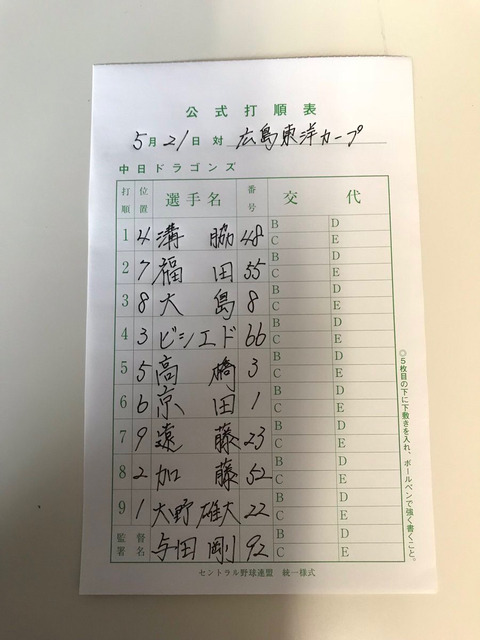 公式打順表
5月21日 対 広島東洋カープ
中日ドラゴンズ
打順 位置 選手名 番号 交代
1 4 溝脇 48 B C D E
2 7 福田 55 B C D E
3 8 大島 8 B C D E
4 3 ビシエド 66 B C D E
5 5 高橋 3 B C D E
6 6 京田 1 B C D E
7 9 遠藤 23 B C D E
8 2 加藤 52 B C D E
9 1 大野雄大 22 B C D E
監督署名 与田剛 92 B C D E
◎5枚目の下に下敷きを入れ、ボールペンで強く書くこと。
セントラル野球連盟 統一様式